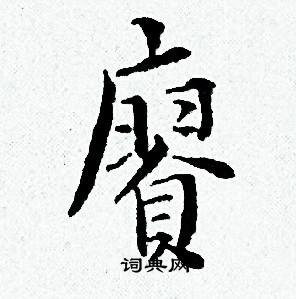 賡
词典网